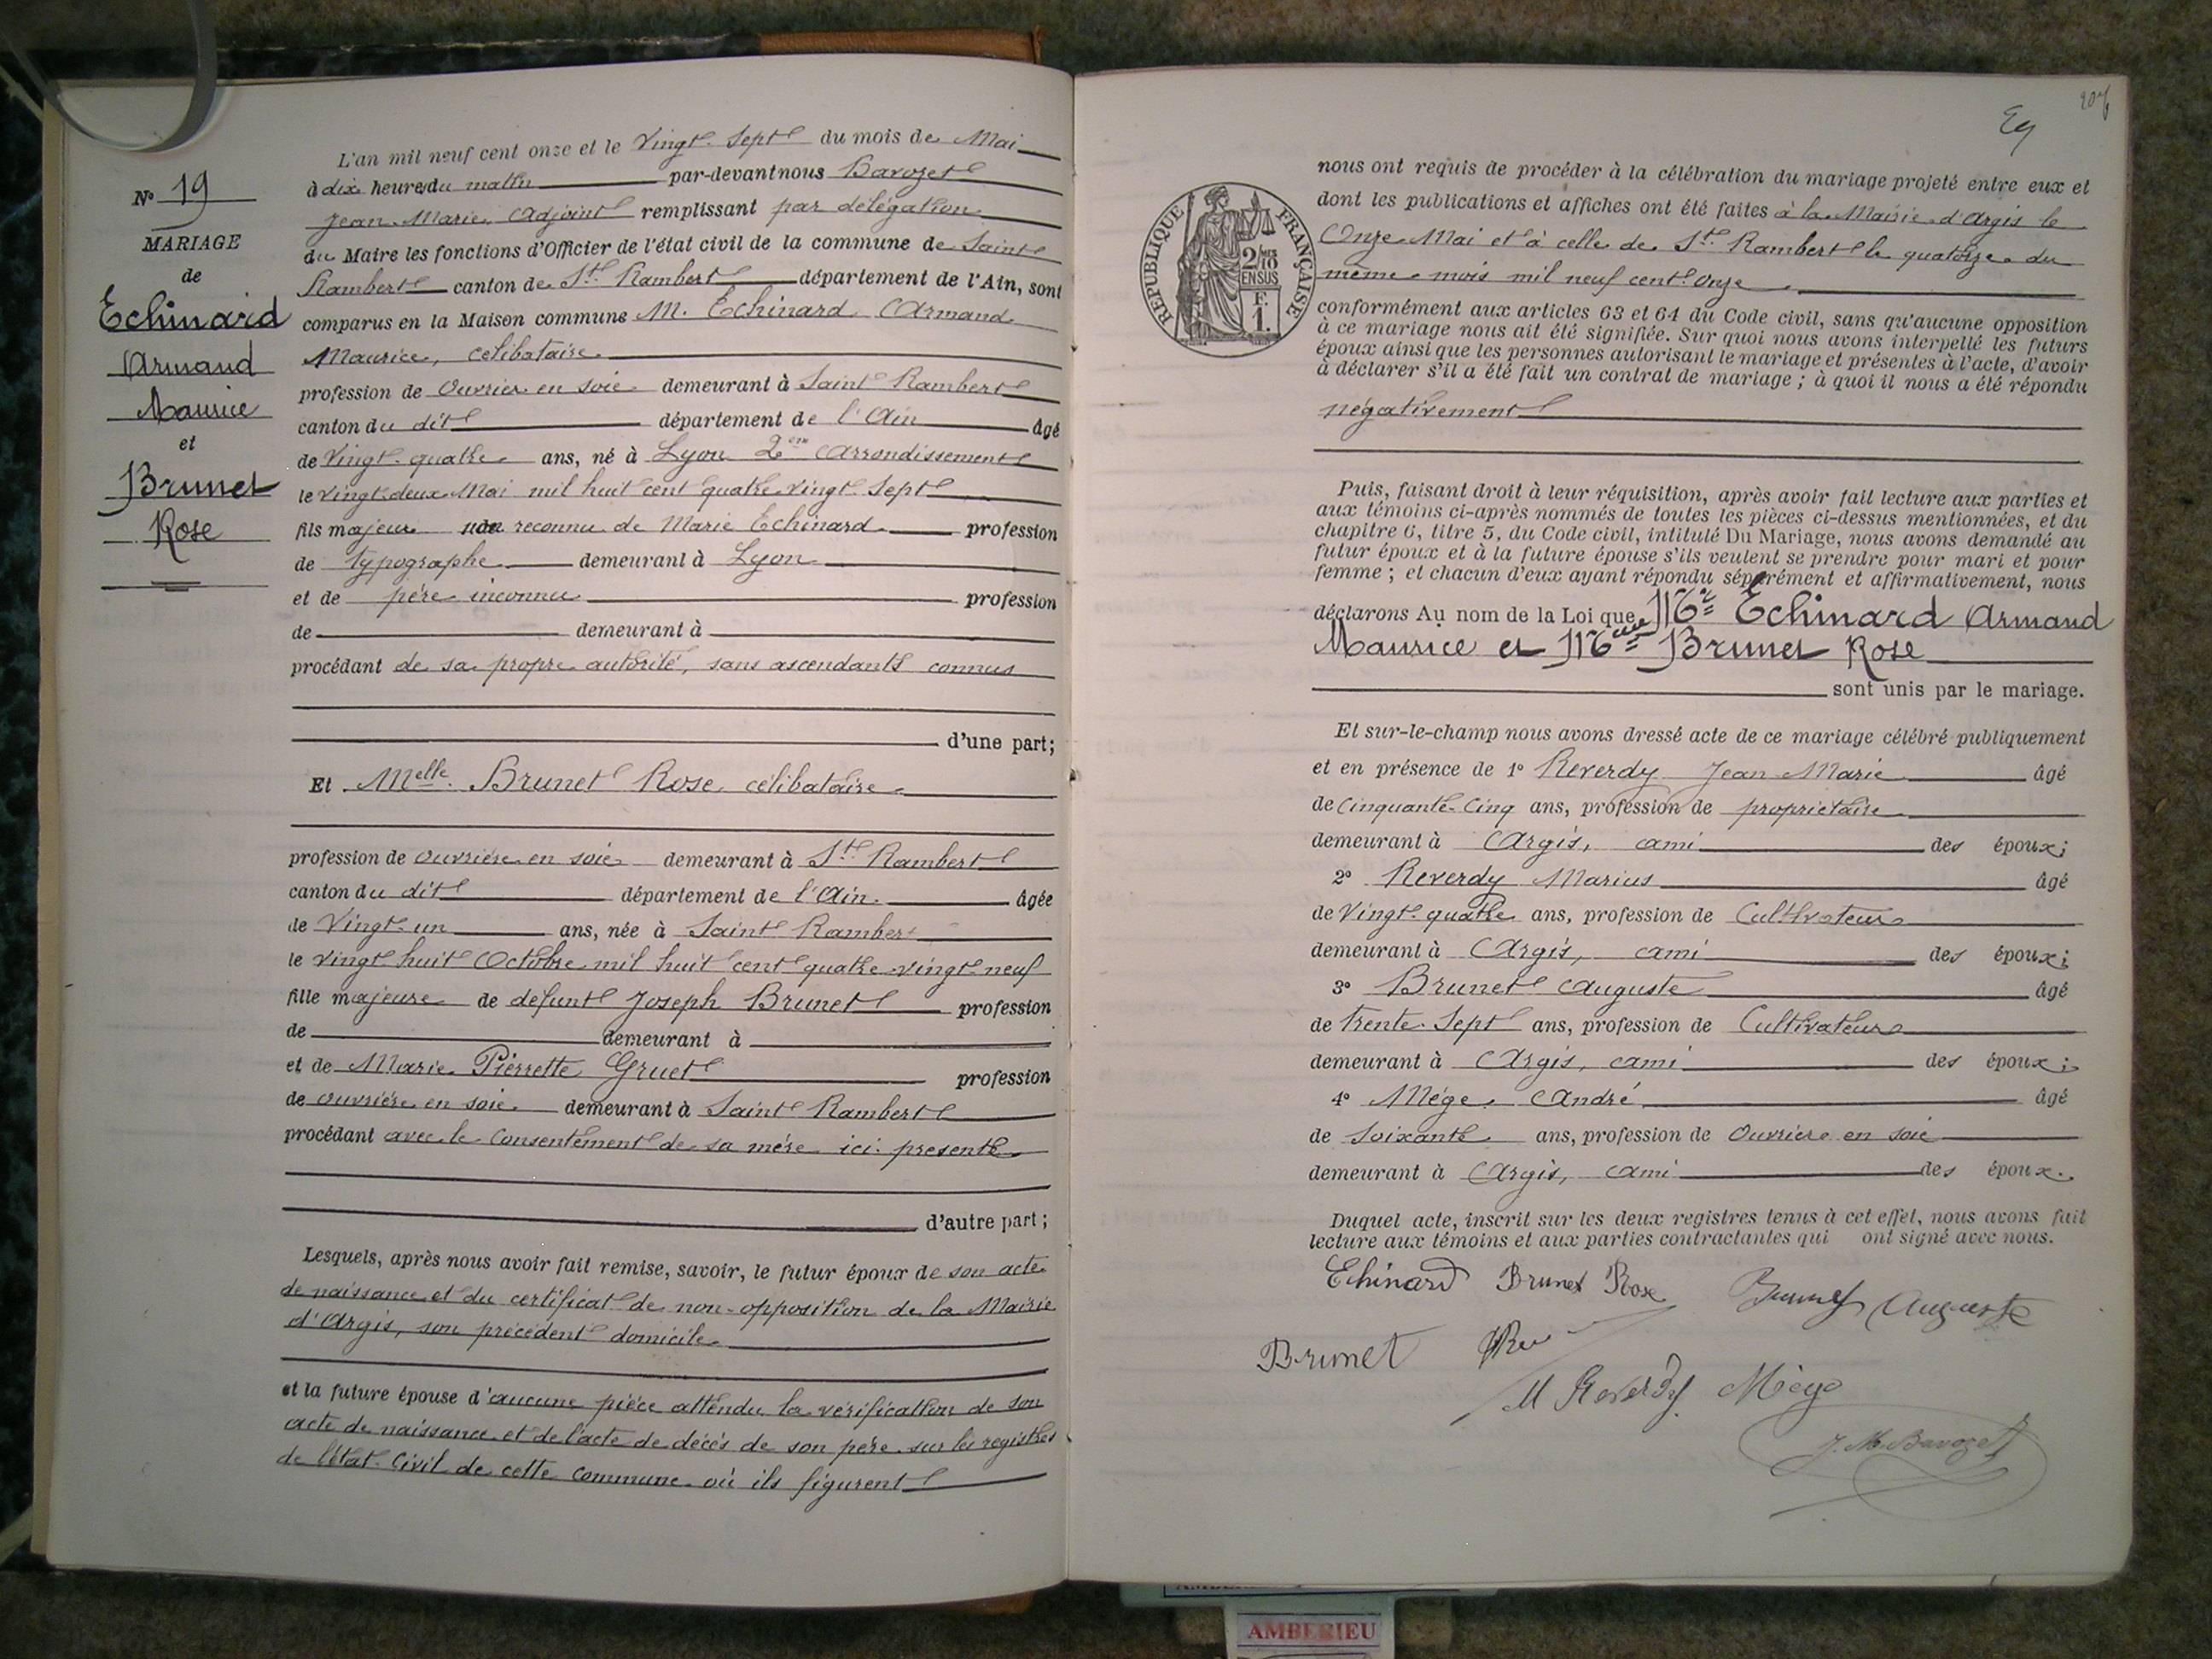 L'an mil neuf cent onze et le Vingt-Sept du mois de Mai
N° 19
à dix heures du matin par-devant nous Bavozet
Jean-Marie, Adjoint remplissant par délégation
MARIAGE
du Maire les fonctions d'Officier de l'état civil de la commune de Saint
de
Rambert canton de St Rambert département de l'Ain, sont
Echinard
comparus en la Maison commune M. Echinard Armand
Armand
Maurice, célibataire
Maurice
profession de Ouvrier en soie demeurant à Saint Rambert
et
canton du dit département de l'Ain âgé
Brunet
de Vingt-quatre ans, né à Lyon 2eme arrondissement
Rose
le vingt-deux Mai mil huit cent quatre-vingt-sept
fils majeur non reconnu de Marie Echinard profession
de typographe demeurant à Lyon
et de père inconnu profession
de demeurant à
procédant de sa propre autorité, sans ascendants connus
d'une part;
Et Melle Brunet Rose, célibataire
profession de ouvrière en soie demeurant à St Rambert
canton du dit département de l'Ain âgée
de Vingt-un ans, née à Saint Rambert
le vingt-huit Octobre mil huit cent quatre-vingt-neuf
fille majeure de défunt Joseph Brunet profession
de demeurant à
et de Marie Pierrette Gruet profession
de ouvrière en soie demeurant à Saint Rambert
procédant avec le consentement de sa mère ici présente
d'autre part;
Lesquels, après nous avoir fait remise, savoir, le futur époux de son acte
de naissance et du certificat de non-opposition de la Mairie
d'Argis, son précédent domicile
et la future épouse d'aucune pièce attendu la vérification de son
acte de naissance et de l'acte de décès de son père sur les registres
de l'état-civil de cette commune où ils figurent
nous ont requis de procéder à la célébration du mariage projeté entre eux et
dont les publications et affiches ont été faites à la Mairie d'Argis le
Onze Mai et à celle de St Rambert le quatorze du
même mois mil neuf cent onze
RÉPUBLIQUE FRANÇAISE
2/10
EN SUS
F.
1.
conformément aux articles 63 et 64 du Code civil, sans qu'aucune opposition
à ce mariage nous ait été signifiée. Sur quoi nous avons interpellé les futurs
époux ainsi que les personnes autorisant le mariage et présentes à l'acte, d'avoir
à déclarer s'il a été fait un contrat de mariage; à quoi il nous a été répondu
négativement
Puis, faisant droit à leur réquisition, après avoir fait lecture aux parties et
aux témoins ci-après nommés de toutes les pièces ci-dessus mentionnées, et du
chapitre 6, titre 5, du Code civil, intitulé Du Mariage, nous avons demandé au
futur époux et à la future épouse s'ils veulent se prendre pour mari et pour
femme; et chacun d'eux ayant répondu séparément et affirmativement, nous
déclarons Au nom de la Loi que Mr Echinard Armand
Maurice et Melle Brunet Rose
sont unis par le mariage.
Et sur-le-champ nous avons dressé acte de ce mariage célébré publiquement
et en présence de 1° Reverdy Jean-Marie âgé
de Cinquante-Cinq ans, profession de propriétaire
demeurant à Argis, ami des époux;
2° Reverdy Marius âgé
de Vingt-quatre ans, profession de Cultivateur
demeurant à Argis, ami des époux;
3° Brunet Auguste âgé
de Trente-Sept ans, profession de Cultivateur
demeurant à Argis, ami des époux;
4° Mége André âgé
de Soixante ans, profession de Ouvrier en soie
demeurant à Argis, ami des époux.
Duquel acte, inscrit sur les deux registres tenus à cet effet, nous avons fait
lecture aux témoins et aux parties contractantes qui ont signé avec nous.
Echinard Brunet Rose Brunet Auguste
Brunet
M Reverdy Mège
J. M. Bavozet
AMBERIEU